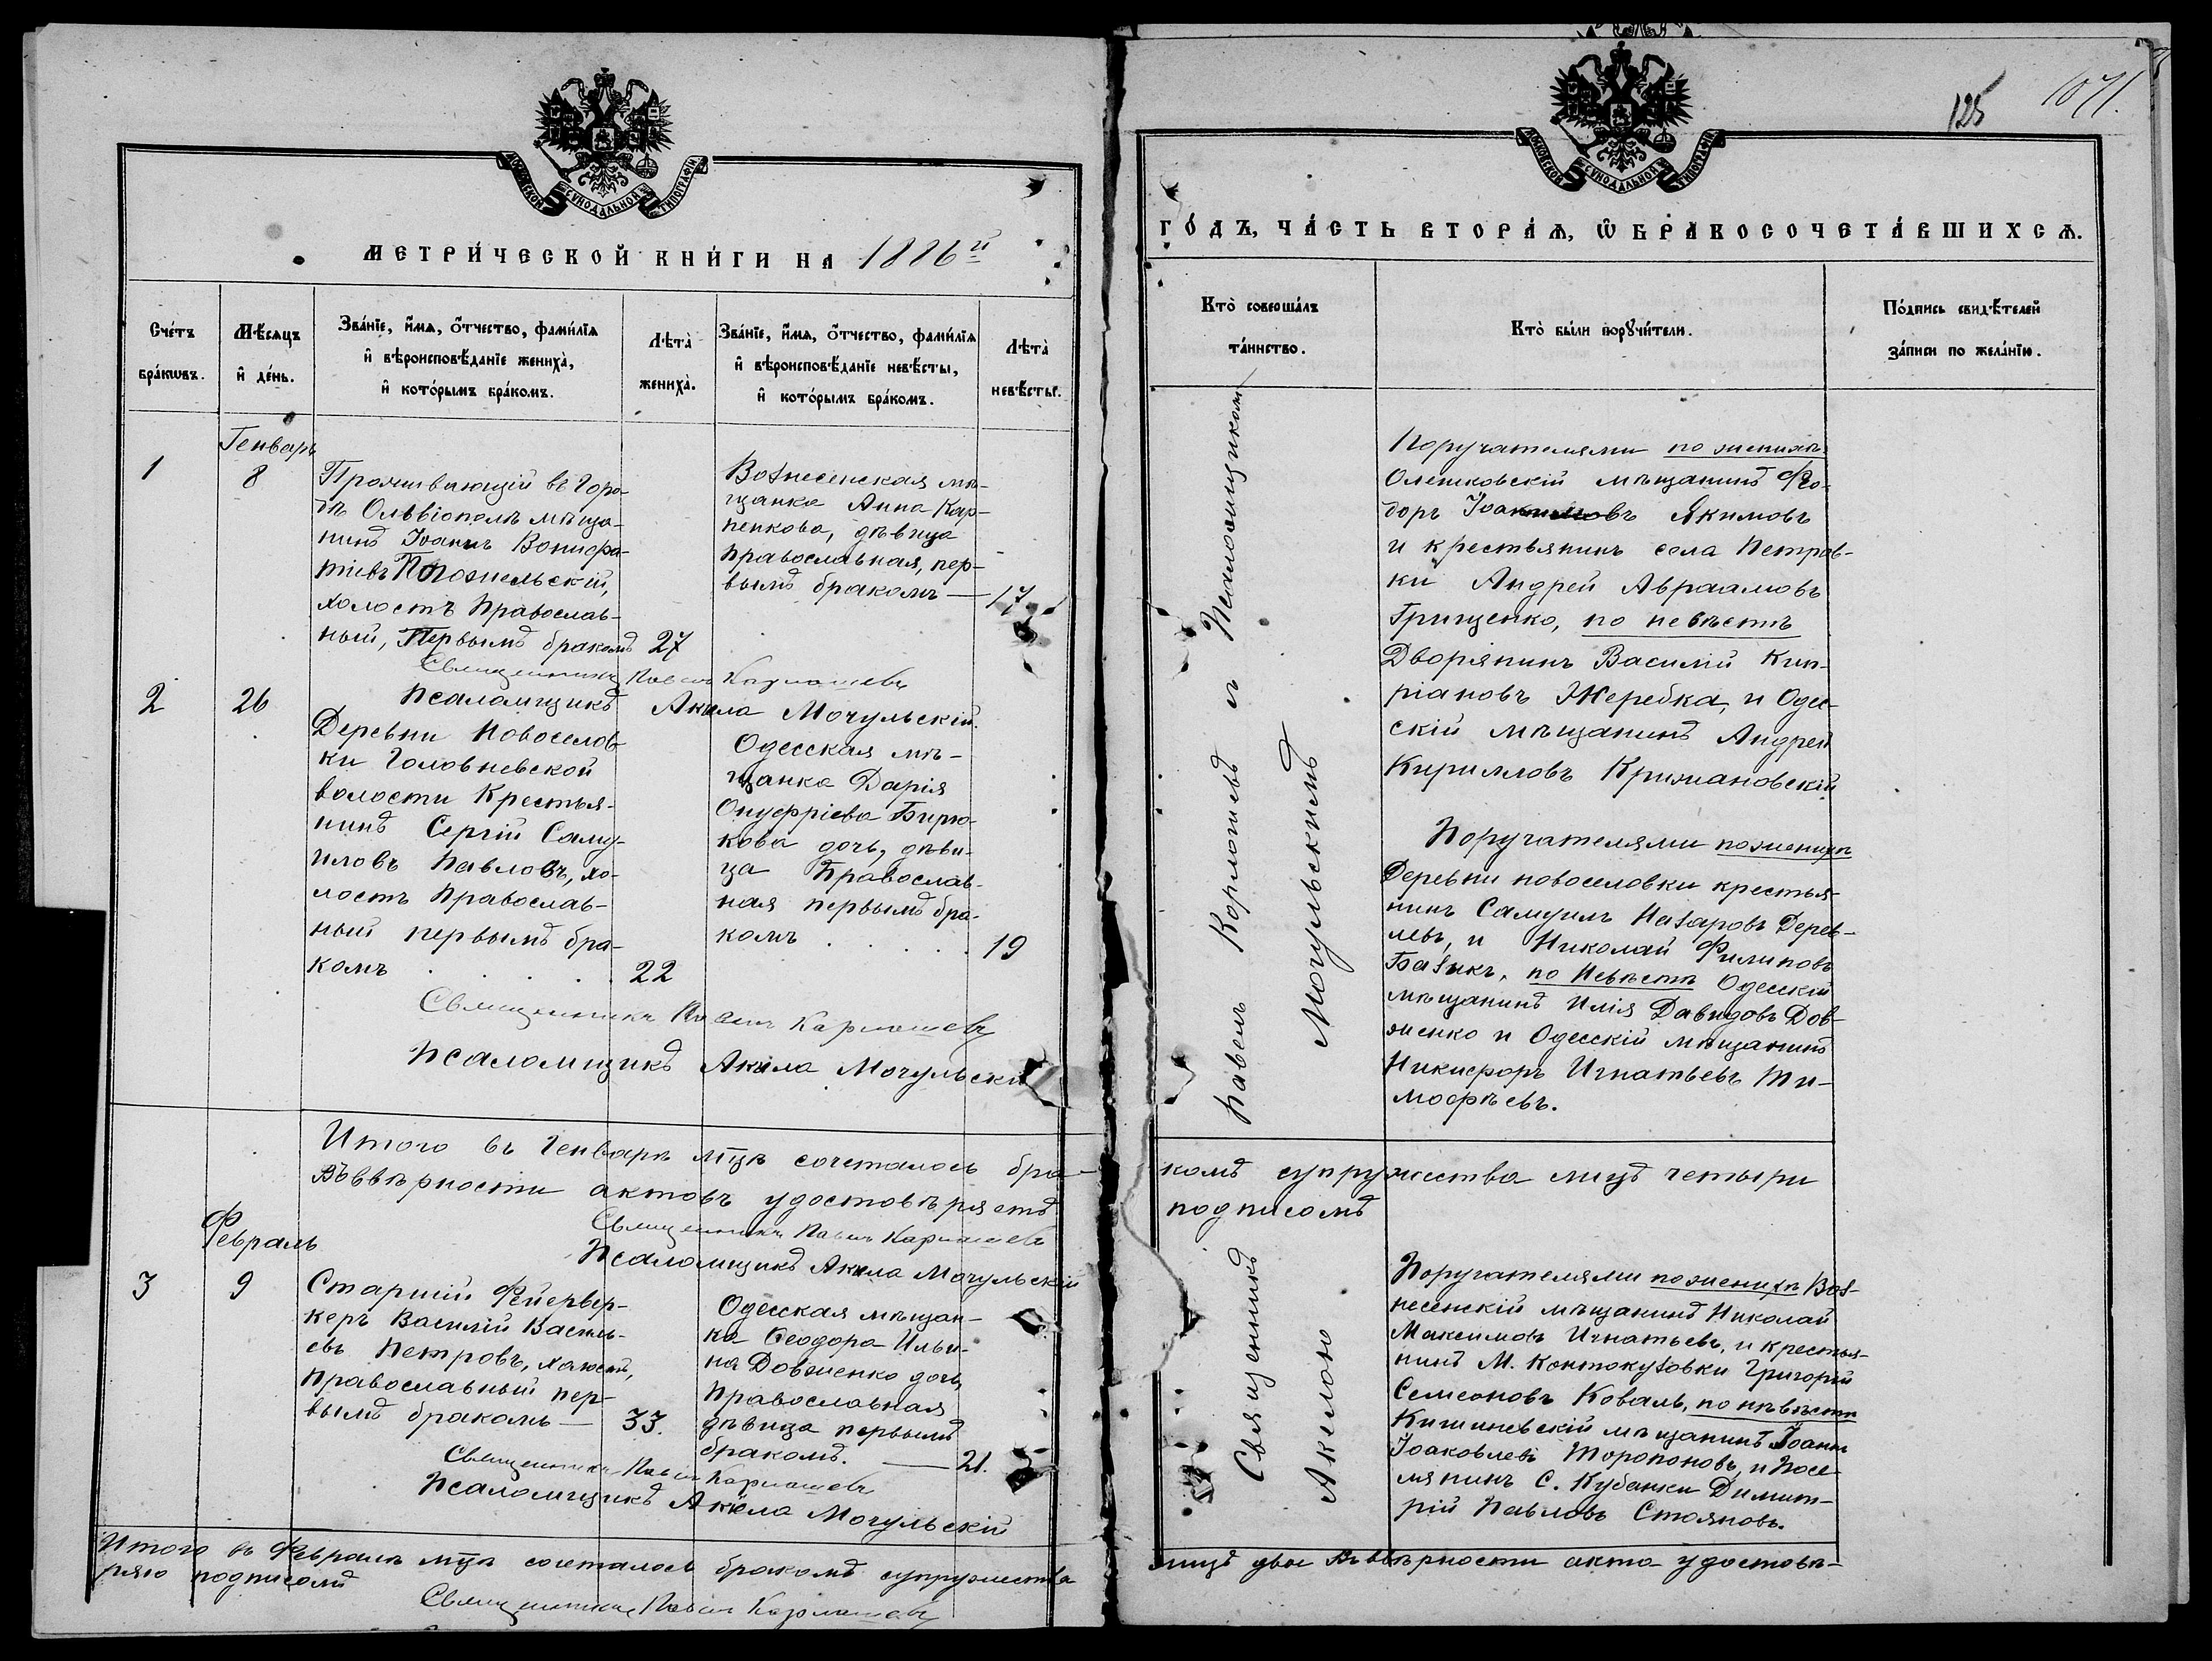 МОСКОВСКОЙ СѴНОДАЛЬНОЙ ТИПОГРАФІИ
МЕТРИ́ЧЕСКОЙ КНИ́ГИ НА 1886й
Сче́тъ бра́кѡвъ.
Мѣ́сяцъ и҆ де́нь.
Зва́нїе, и҆́мѧ, ѻ҆́тчество, фами́лїѧ
и҆ вѣроисповѣ́данїе жениха̀,
и҆ кото́рымъ бра́комъ.
Лѣта̀ жениха̀.
Зва́нїе, и҆́мѧ, ѻ҆́тчество, фами́лїѧ
и҆ вѣроисповѣ́данїе невѣ́сты,
и҆ кото́рымъ бра́комъ.
Лѣта̀ невѣ́сты.
Генварь
1
8
Проживающій въ Горо-
дѣ Ольвіополѣ мѣща-
нинъ Іоаннъ Вонифа-
тіевъ Погожельскій,
холостъ Православ-
ный, Первымъ бракомъ 27
Вознесенская мѣ-
щанка Анна Кар-
пенкова, дѣвица
православная, пер-
вымъ бракомъ — 17
Священникъ Павелъ Кармашевъ
Псаломщикъ Акила Мочульскій.
2
26
Деревни Новоселов-
ки Головневской
волости Крестья-
нинъ Сергій Саму-
иловъ Павловъ, хо-
лостъ Православ-
ный первымъ бра-
комъ . . . . 22
Одесская мѣ-
щанка Дарія
Онуфріева Бирю-
кова дочь, дѣви-
ца Православ-
ная первымъ бра-
комъ . . . . 19
Священникъ Павелъ Кармашевъ
Псаломщикъ Акила Мочульскій
Итого въ Генварѣ мцѣ сочеталось бра-
Въ вѣрности актовъ удостовѣряетъ
Священникъ Павелъ Кармашевъ
Псаломщикъ Акила Мочульскій
Февраль
3
9
Старшій Фейервер-
керъ Василій Василь-
евъ Петровъ, холостъ,
православный пер-
вымъ бракомъ — 33.
Одесская мѣщан-
ка Ѳеодора Ильи-
на Довженко дочь,
Православная
дѣвица первымъ
бракомъ. — 21.
Священникъ Павелъ Кармашевъ
Псаломщикъ Акила Мочульскій
Итого въ Февралѣ мцѣ сочеталось бракомъ супружества
ряю подписомъ
Священникъ Павелъ Кармашевъ
125
МОСКОВСКОЙ СѴНОДАЛЬНОЙ ТИПОГРАФІИ
ГО́ДЪ, ЧА́СТЬ ВТОРА́Ѧ, Ѡ҆ БРАКОСОЧЕТА́ВШИХСѦ.
Кто̀ соверша́лъ
та́инство.
Кто̀ бы́ли порꙋчи́тели.
По́дпись свидѣ́телей
за́писи по жела́нїю.
Священникъ Павелъ Кормошевъ и Псаломщикомъ
Акилою Мочульскимъ
Поручателями по женихѣ
Олешковскій мѣщанинъ Фео-
доръ Іоакимовъ Якимовъ
и крестьянинъ села Петров-
ки Андрей Авраамовъ
Грищенко, по невѣстѣ
Дворянинъ Василій Кип-
ріановъ Жеребка, и Одес-
скій мѣщанинъ Андрей
Кирилловъ Крижановскій
Поручателями по женихѣ
Деревни новоселовки крестья-
нинъ Самуилъ Назаровъ Дерев-
левъ, и Николай Филиповъ
Базикъ, по Невѣстѣ Одесскій
мѣщанинъ Илія Давидовъ Дов-
женко и Одесскій мѣщанинъ
Никифоръ Игнатьевъ Ти-
мофѣевъ.
комъ супружества лицъ четыри
подписомъ
Поручателями по женихѣ Воз-
несенскій мѣщанинъ Николай
Максимовъ Игнатьевъ, и крестья-
нинъ М. Контокузовки Григорій
Семеоновъ Коваль, по невѣстѣ
Кишиневскій мѣщанинъ Іоаннъ
Іоаковлевъ Торопоновъ, и Посе-
лянинъ С. Кубанки Димит-
рій Павловъ Стояновъ.
лицъ двое Въ вѣрности акта удостовѣ-